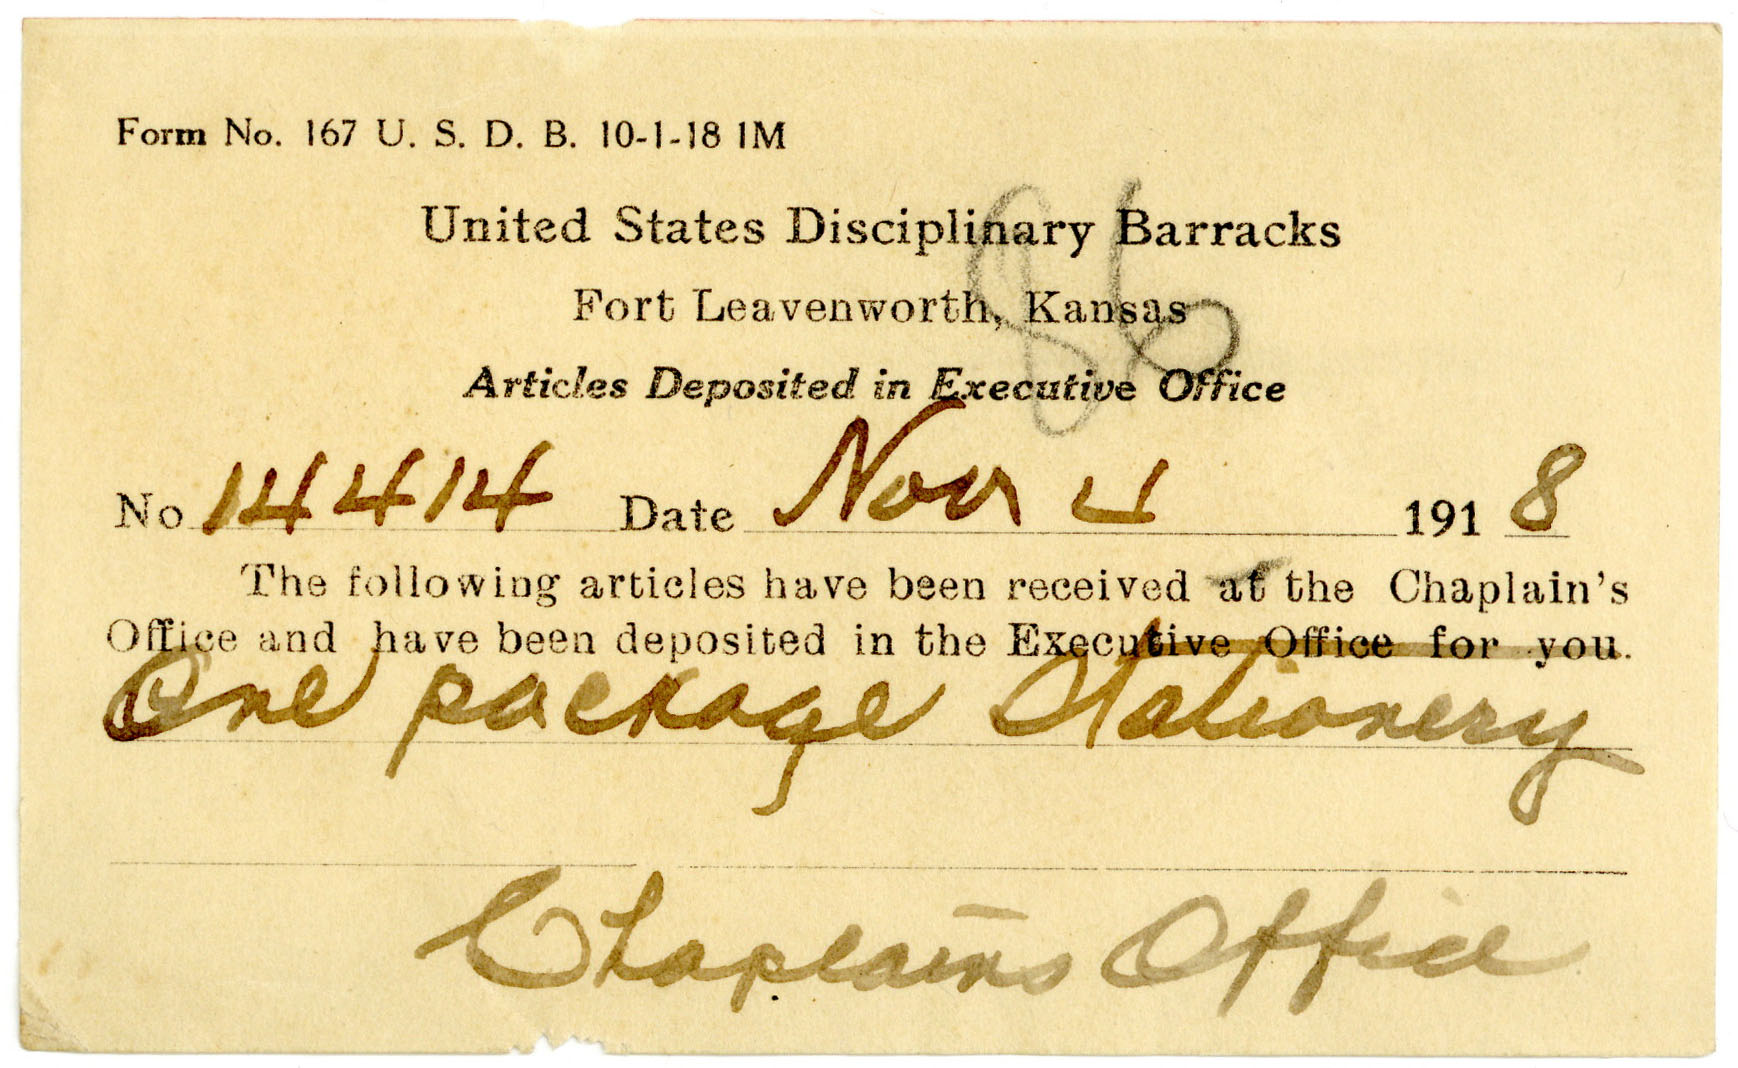 Form No. 167 U. S. D. B. 10-1-18 1M
United States Disciplinary Barracks
86
Fort Leavenworth, Kansas
Articles Deposited in Executive Office
No 14414 Date Nov 4 1918
The following articles have been received at the Chaplain's
Office and have been deposited in the Executive Office for you.
One package Stationery
Chaplains Office